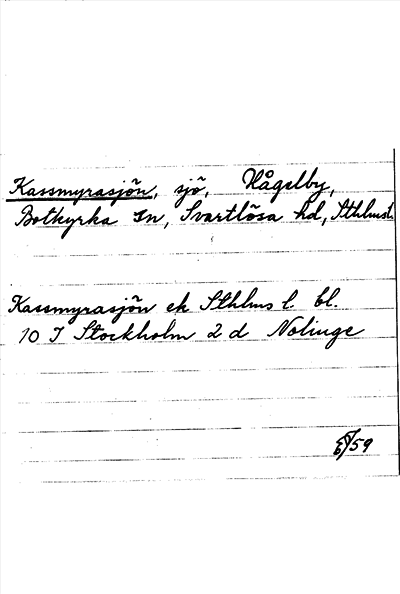 Kassmyrasjön, sjö, Hågelby,
Botkyrka sn, Svartlösa hd, Sthlmsl.
Kassmyrasjön ek Sthlms l. bl.
10 I Stockholm 2 d Nolinge